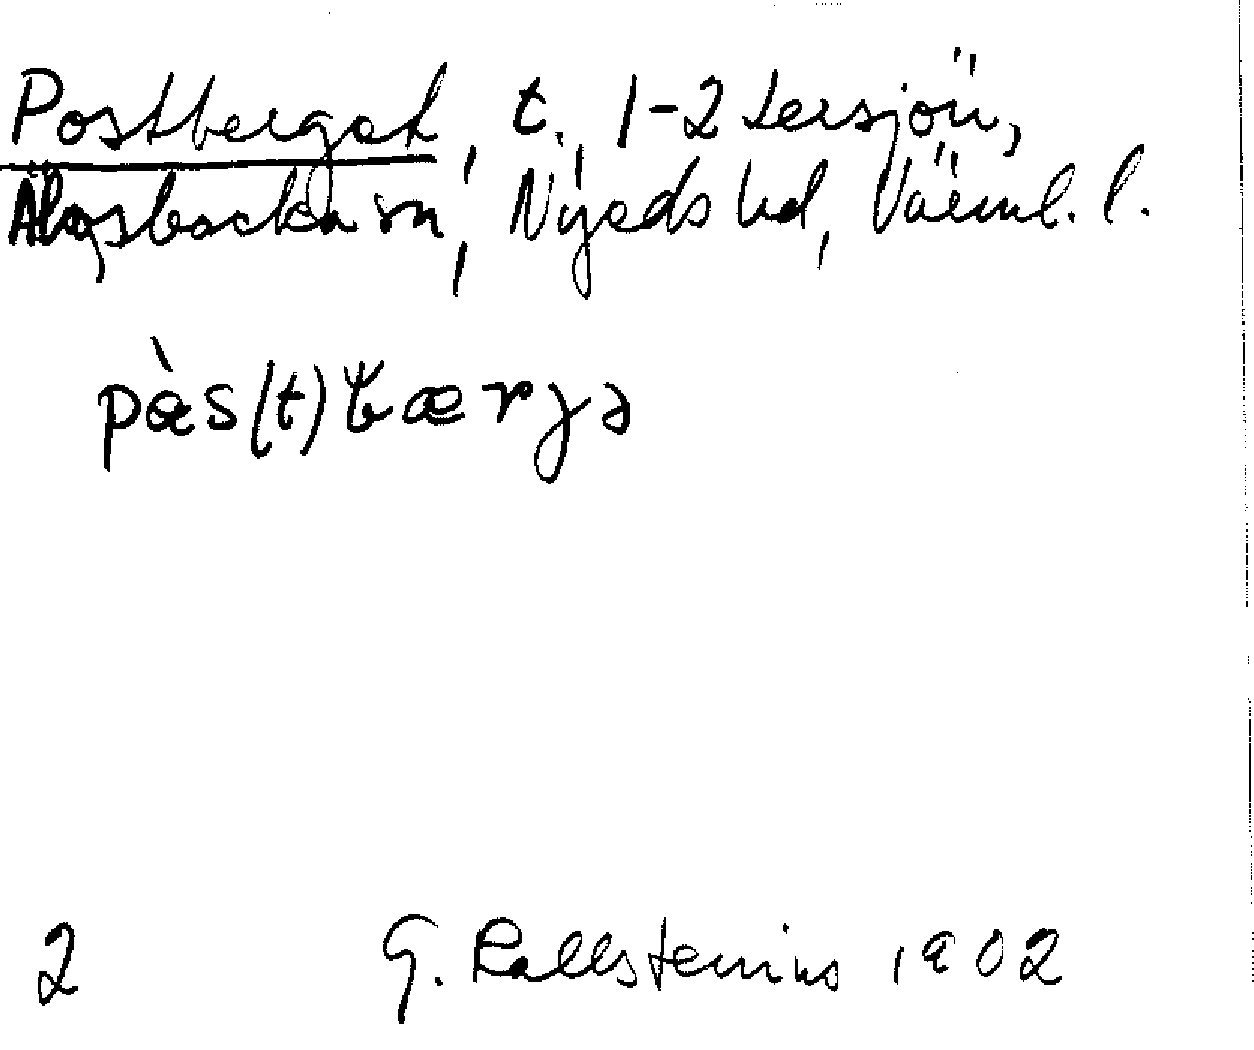 Postberget, t. 1-2 Lersjön,
Älvsbacka sn, Nyeds hd, Värml. l.
pås(t)bærjə
2 G. Kallstenius 1902